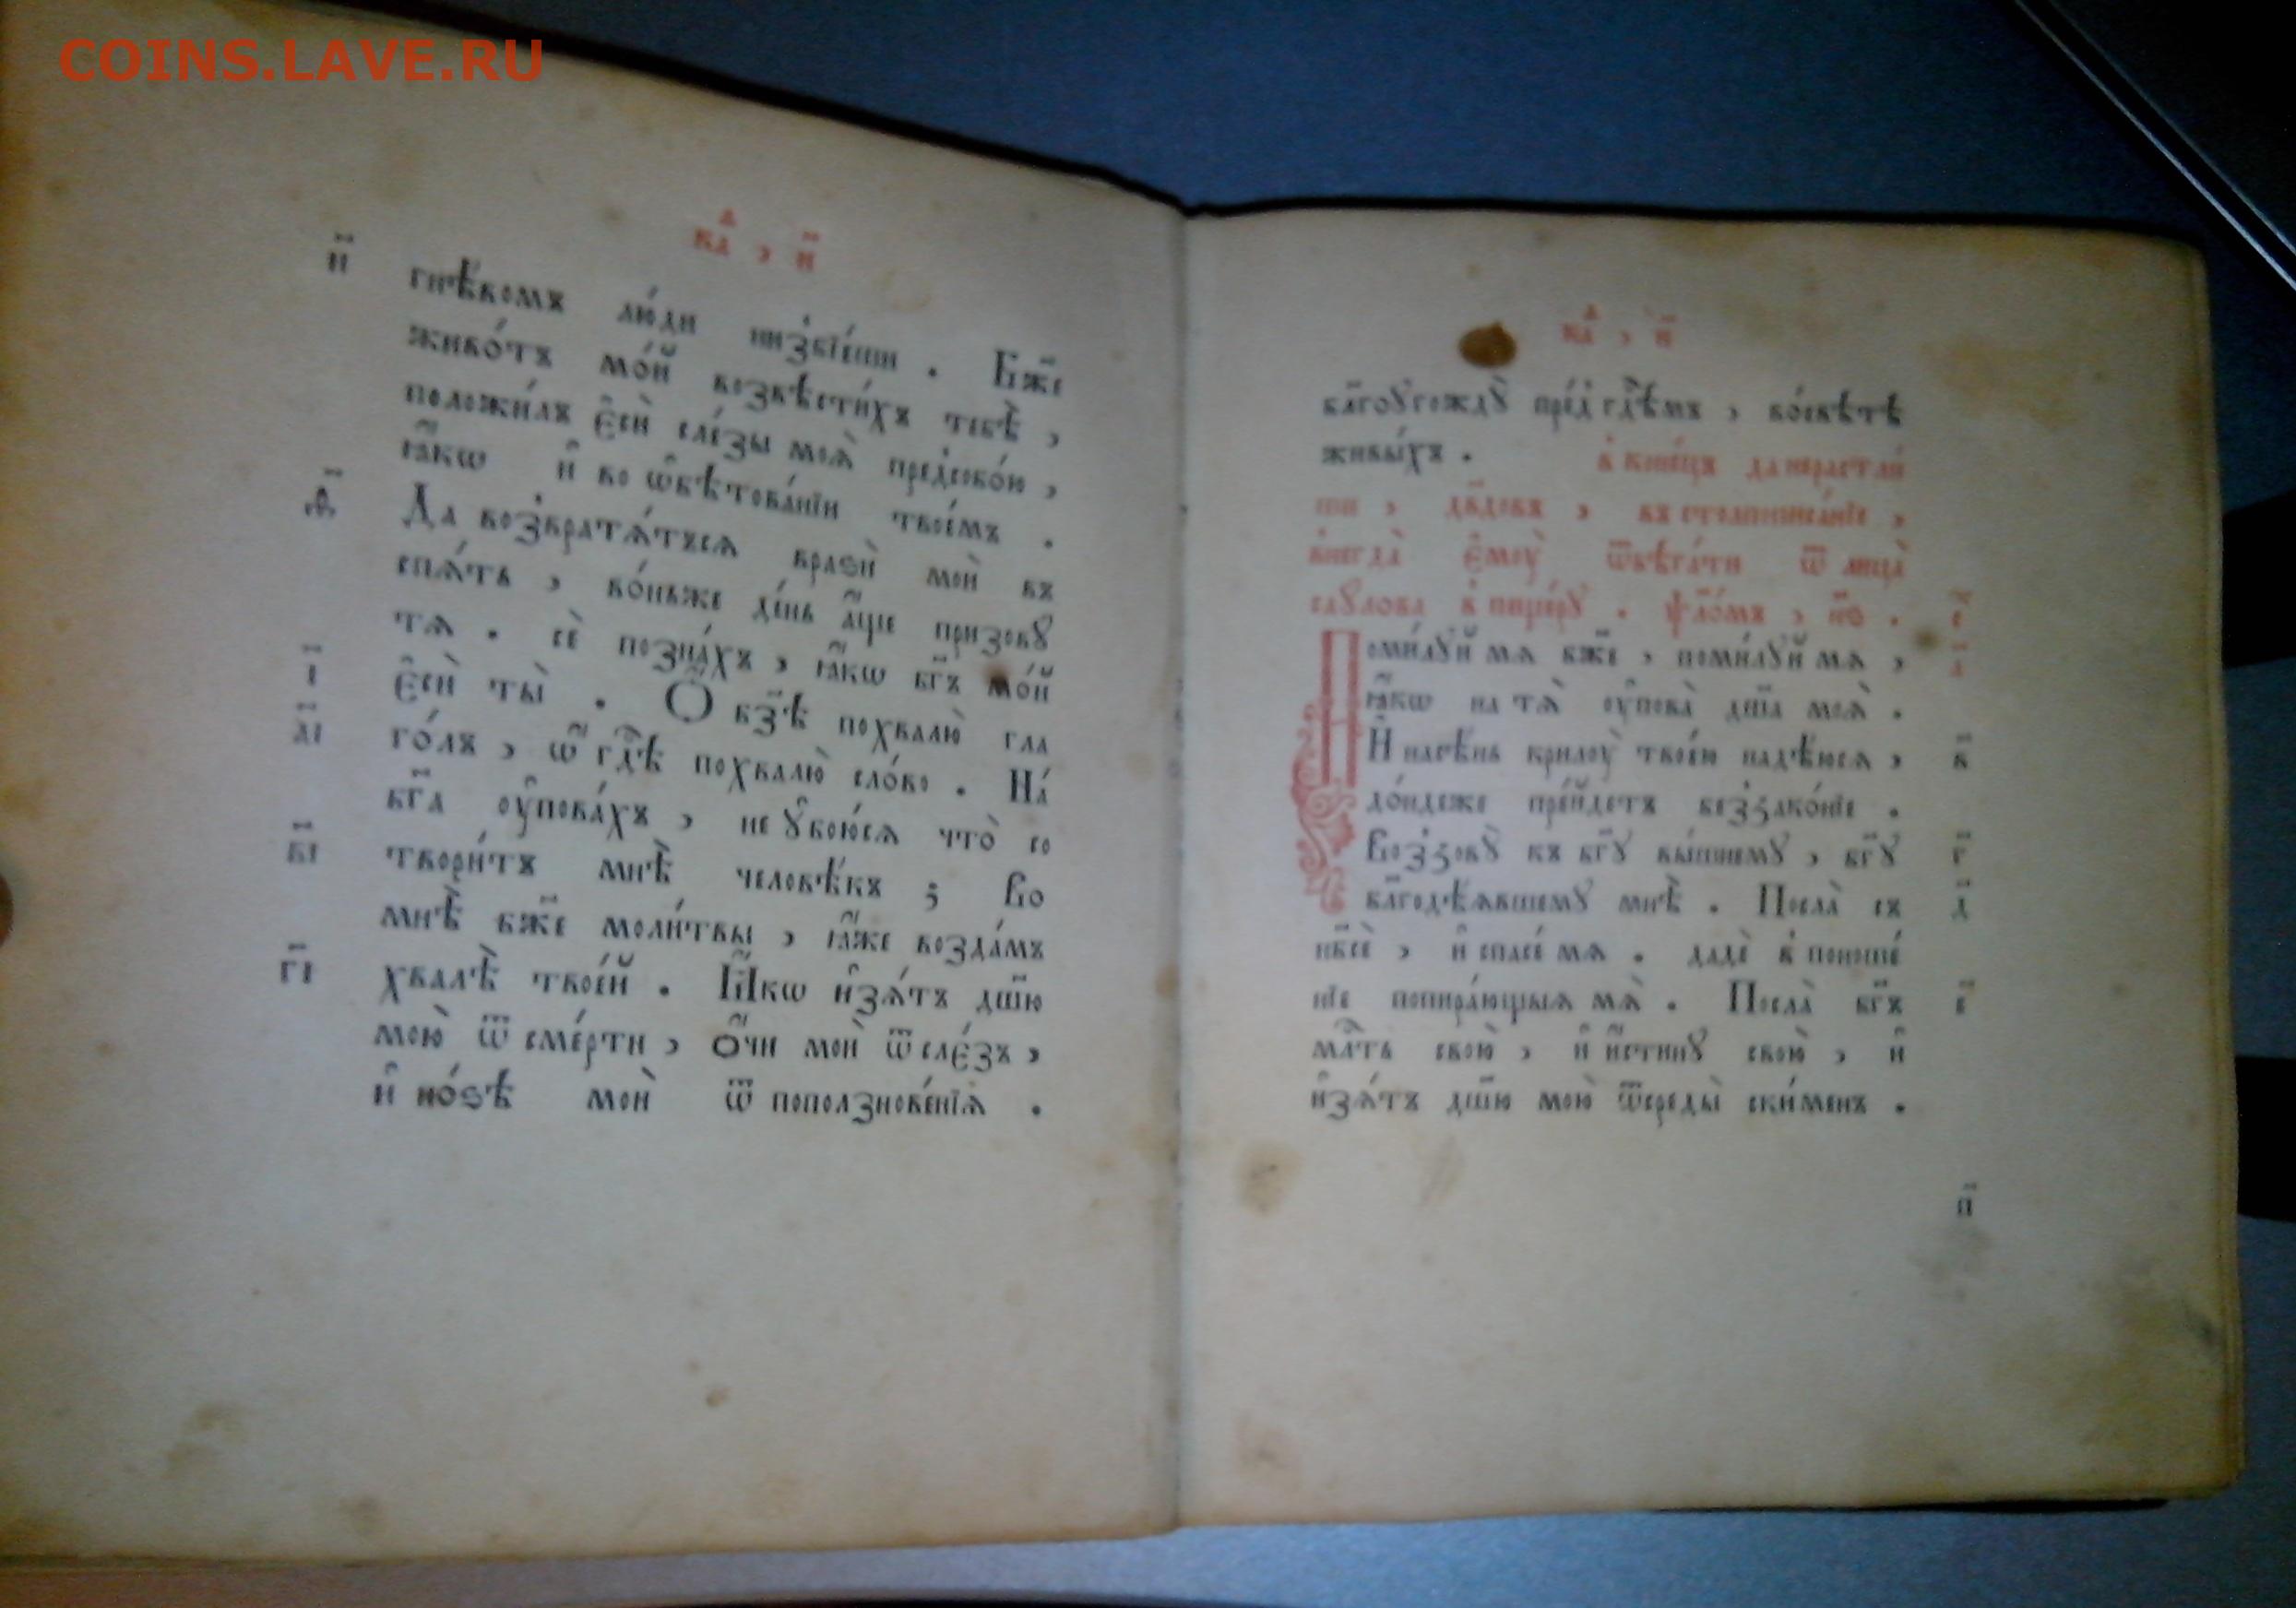 COINS.LAVE.RU
и҃
гнѣ́вомъ лю́ди низ̾вїе́ши . Бж҃е
живо́тъ мо́й возвѣсти́хъ тебѣ̀ ,
положи́лъ є҆сѝ сле́зы моѧ̀ пред̾собо́ю ,
ꙗ҆́кѡ и҆ во ѡ҆бѣтова́нїи твое́мъ .
Да воз̾вратѧ́тъсѧ вразѝ моѝ въ
спѧ́ть , во́ньже де́нь а҆́ще призовꙋ̀
тѧ . сѐ позна́хъ , ꙗ҆́кѡ бг҃ъ мо́й
і҃
є҆сѝ ты̀ . Ѽ бз҃ѣ похвалю̀ гла
а҃і
го́лъ , ѽ гдⷭ҇ѣ похвалю̀ сло́во . На́
бг҃а оу҆пова́хъ , не ꙋ҆бою́сѧ что̀ со
в҃і
твори́тъ мнѣ̀ человѣ́къ ; Во
мнѣ̀ бж҃е моли́твы , ꙗ҆́же возда́мъ
г҃і
хвалѣ̀ твое́й . Ꙗ҆́кѡ и҆зѧ́тъ дш҃ю
мою̀ ѿ сме́рти , о҆́чи моѝ ѿ сле́зъ ,
и҆ но́ѕѣ моѝ ѿ поползнове́нїѧ .
бл҃гоꙋгождꙋ̀ пре́д гдⷭ҇ѣмъ , во́свѣтѣ
живы́хъ . в̾ коне́цъ да нерастли́
ши , дв҃довъ , въ столпописа́нїе ,
внегда̀ є҆моу̀ ѿбѣга́ти ѿ лица̀
саꙋлова в̾ пеще́рꙋ . ѱало́мъ , н҃ѕ .
Поми́лꙋй мѧ бж҃е , поми́лꙋй мѧ ,
ꙗ҆́кѡ на тѧ̀ оу҆пова̀ дш҃а моѧ̀ .
И҆ насѣ́нь крилоу̀ твоє́ю надѣ́юсѧ ,
в҃
до́ндеже пре́йдетъ без̾зако́нїе .
Воз̾зовꙋ̀ къ бг҃ꙋ вы́шнемꙋ , бг҃ꙋ
г҃
бл҃годѣѧвшемꙋ мнѣ̀ . Посла̀ съ
д҃
нб҃сѐ , и҆ спасе́ мѧ . дадѐ в̾ поноше́
нїе попира́ющыѧ мѧ̀ . Посла̀ бг҃ъ
є҃
млⷭ҇ть свою̀ , и҆ и҆́стинꙋ свою̀ , и҆
и҆зѧ́тъ дш҃ю мою̀ ѿсреды̀ ски́менъ .
п҃